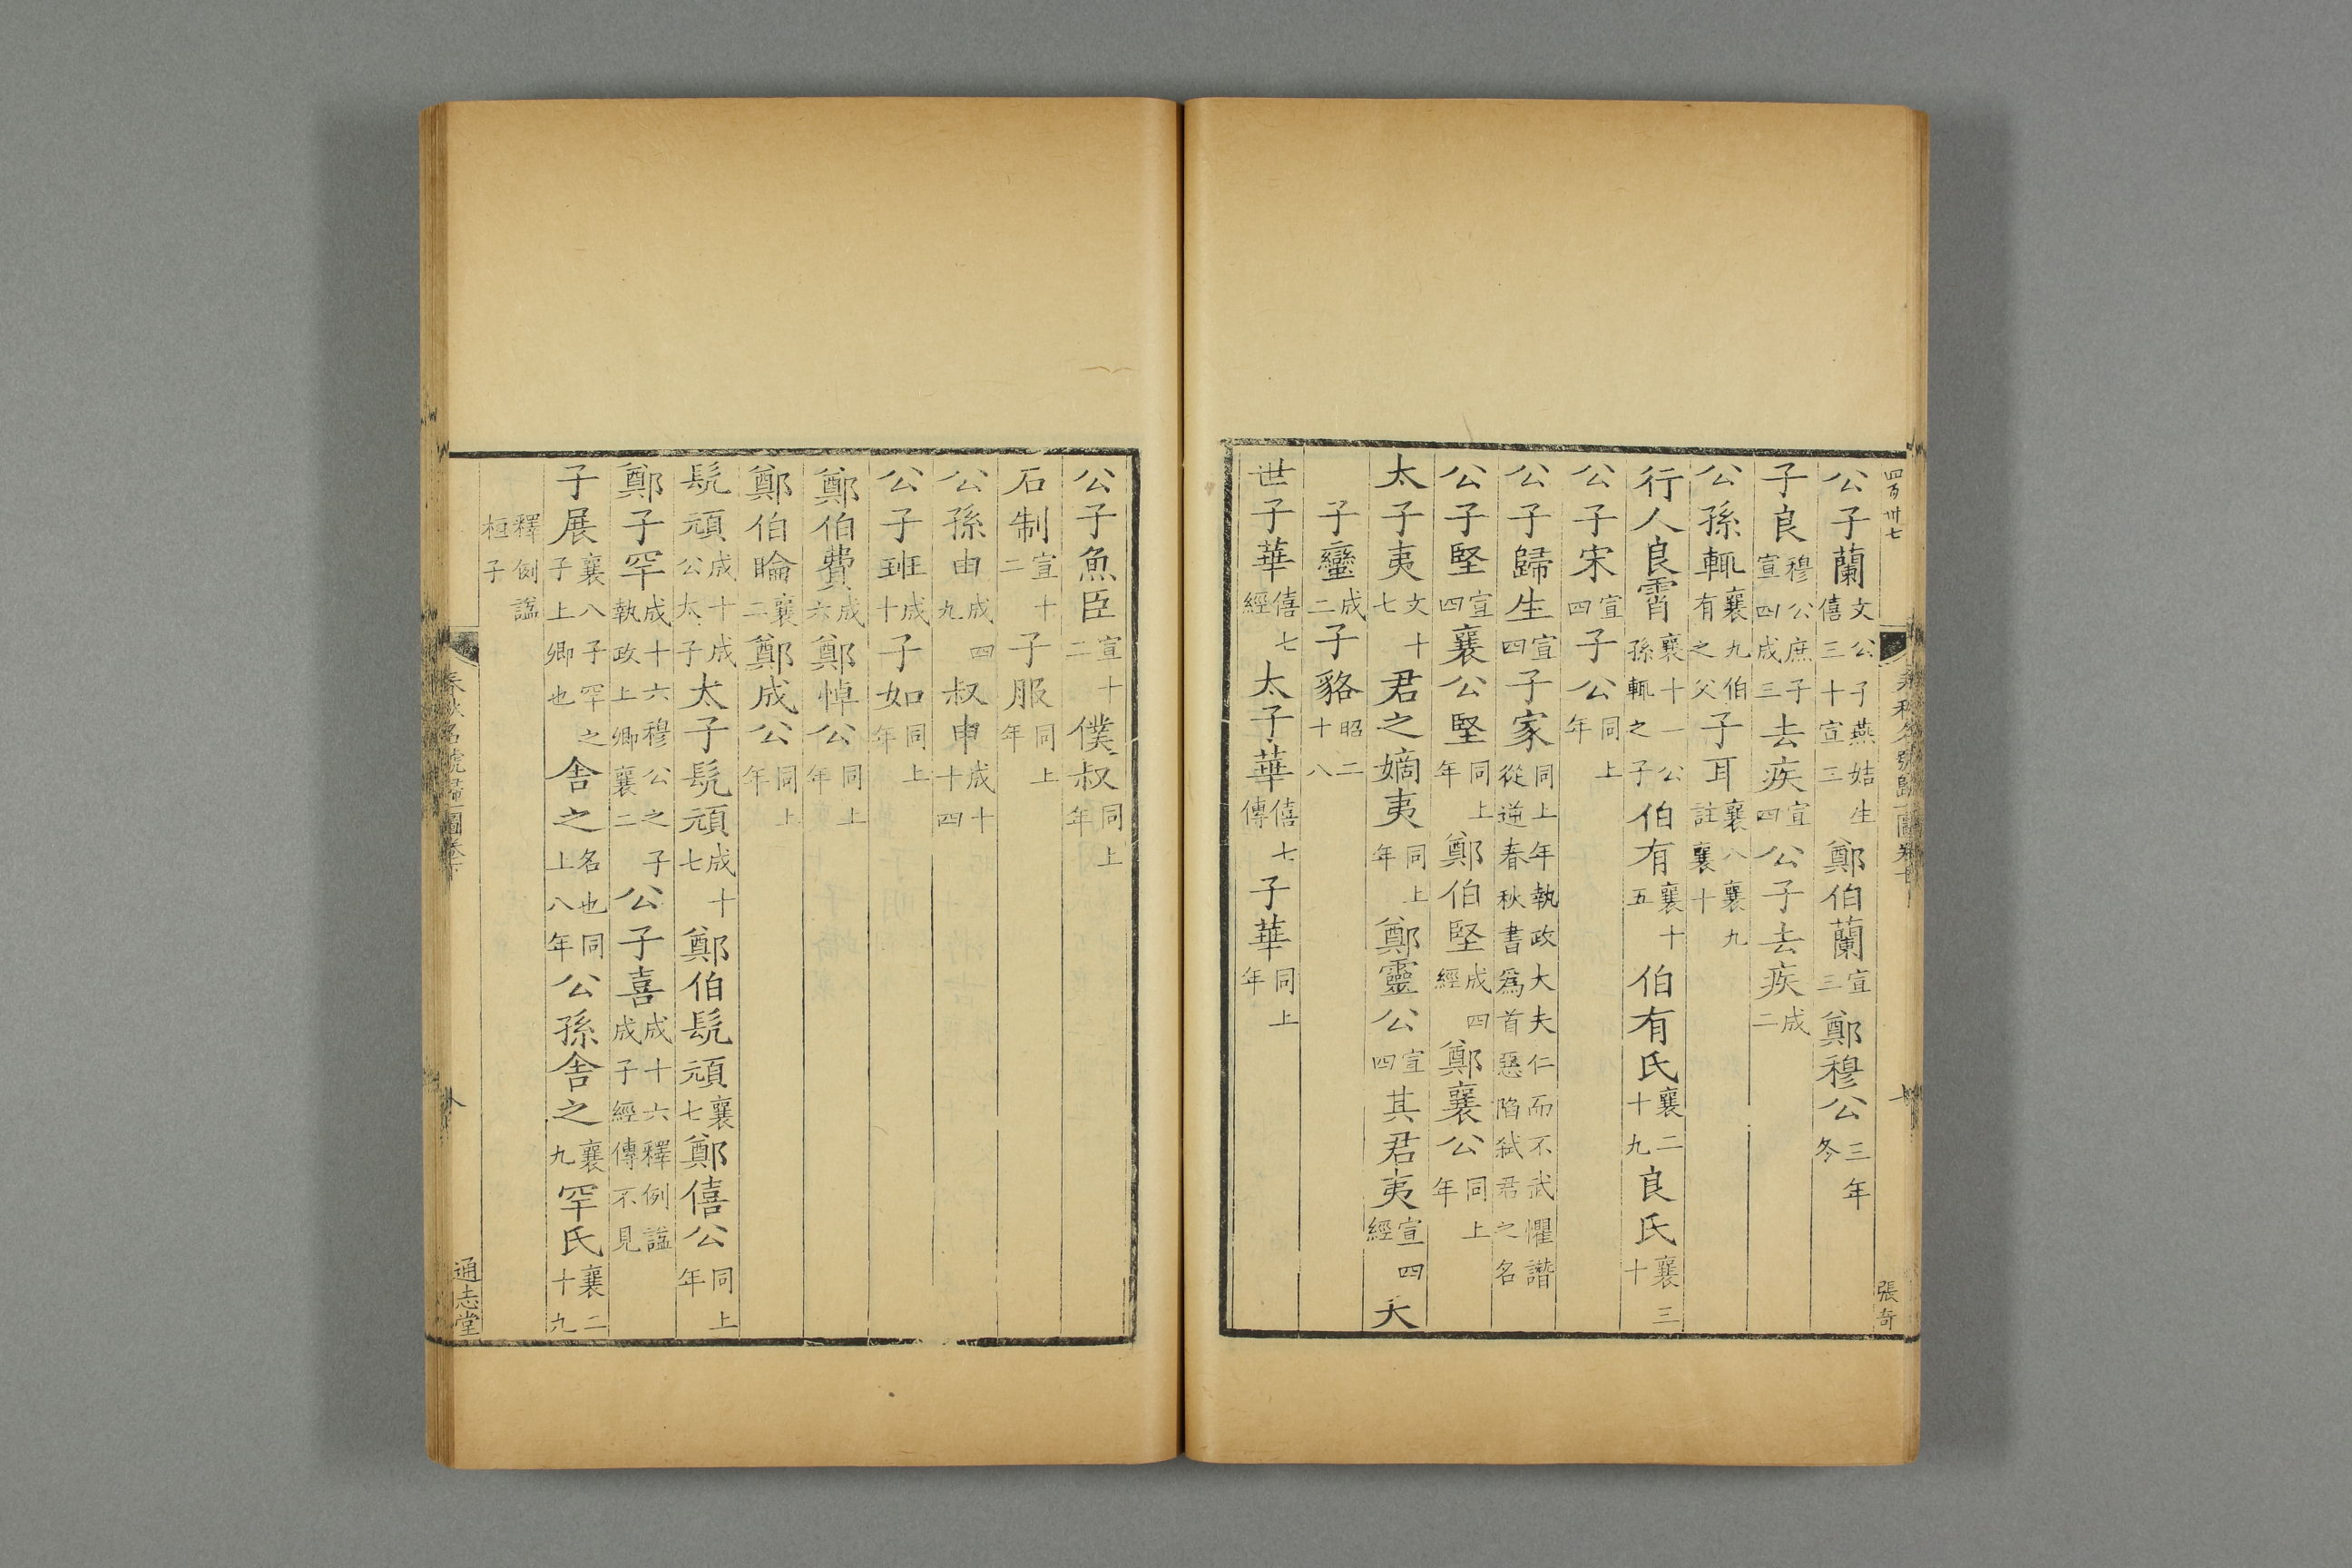 四百卅七
春秋名號歸一圖卷下
七
張奇
公子蘭文公子燕姞生僖三十宣三鄭伯蘭宣三鄭穆公三年冬
子良穆公庶子宣四成三去疾宣四公子去疾成二
公孫輒襄九伯有之父子耳襄八襄九註襄十
行人良霄襄十一公孫輒之子伯有襄十五伯有氏襄二十九良氏襄三十
公子宋宣四子公同上年
公子歸生宣四子家同上年執政大夫仁而不武懼譖從逆春秋書為首惡陷弑君之名
公子堅宣四襄公堅同上年鄭伯堅成四經鄭襄公同上年
太子夷文十七君之嫡夷同上年鄭靈公宣四其君夷宣四經大
子蠻成二子貉昭二十八
世子華僖七經太子華僖七傳子華同上年
公子魚臣宣十二僕叔同上年
石制宣十二子服同上年
公孫申成四九叔申成十十四
公子班成十子如同上年
鄭伯費成六鄭悼公同上年
鄭伯睔襄二鄭成公同上年
髡頑成十成公太子太子髡頑成十七鄭伯髡頑襄七鄭僖公同上年
鄭子罕成十六穆公之子執政上卿襄二公子喜成十六釋例謚成子經傳不見
子展襄八子罕之子上卿也舍之名也同上八年公孫舍之襄九罕氏襄二十九
釋例謚桓子
春秋名號歸一圖卷下
八
通志堂